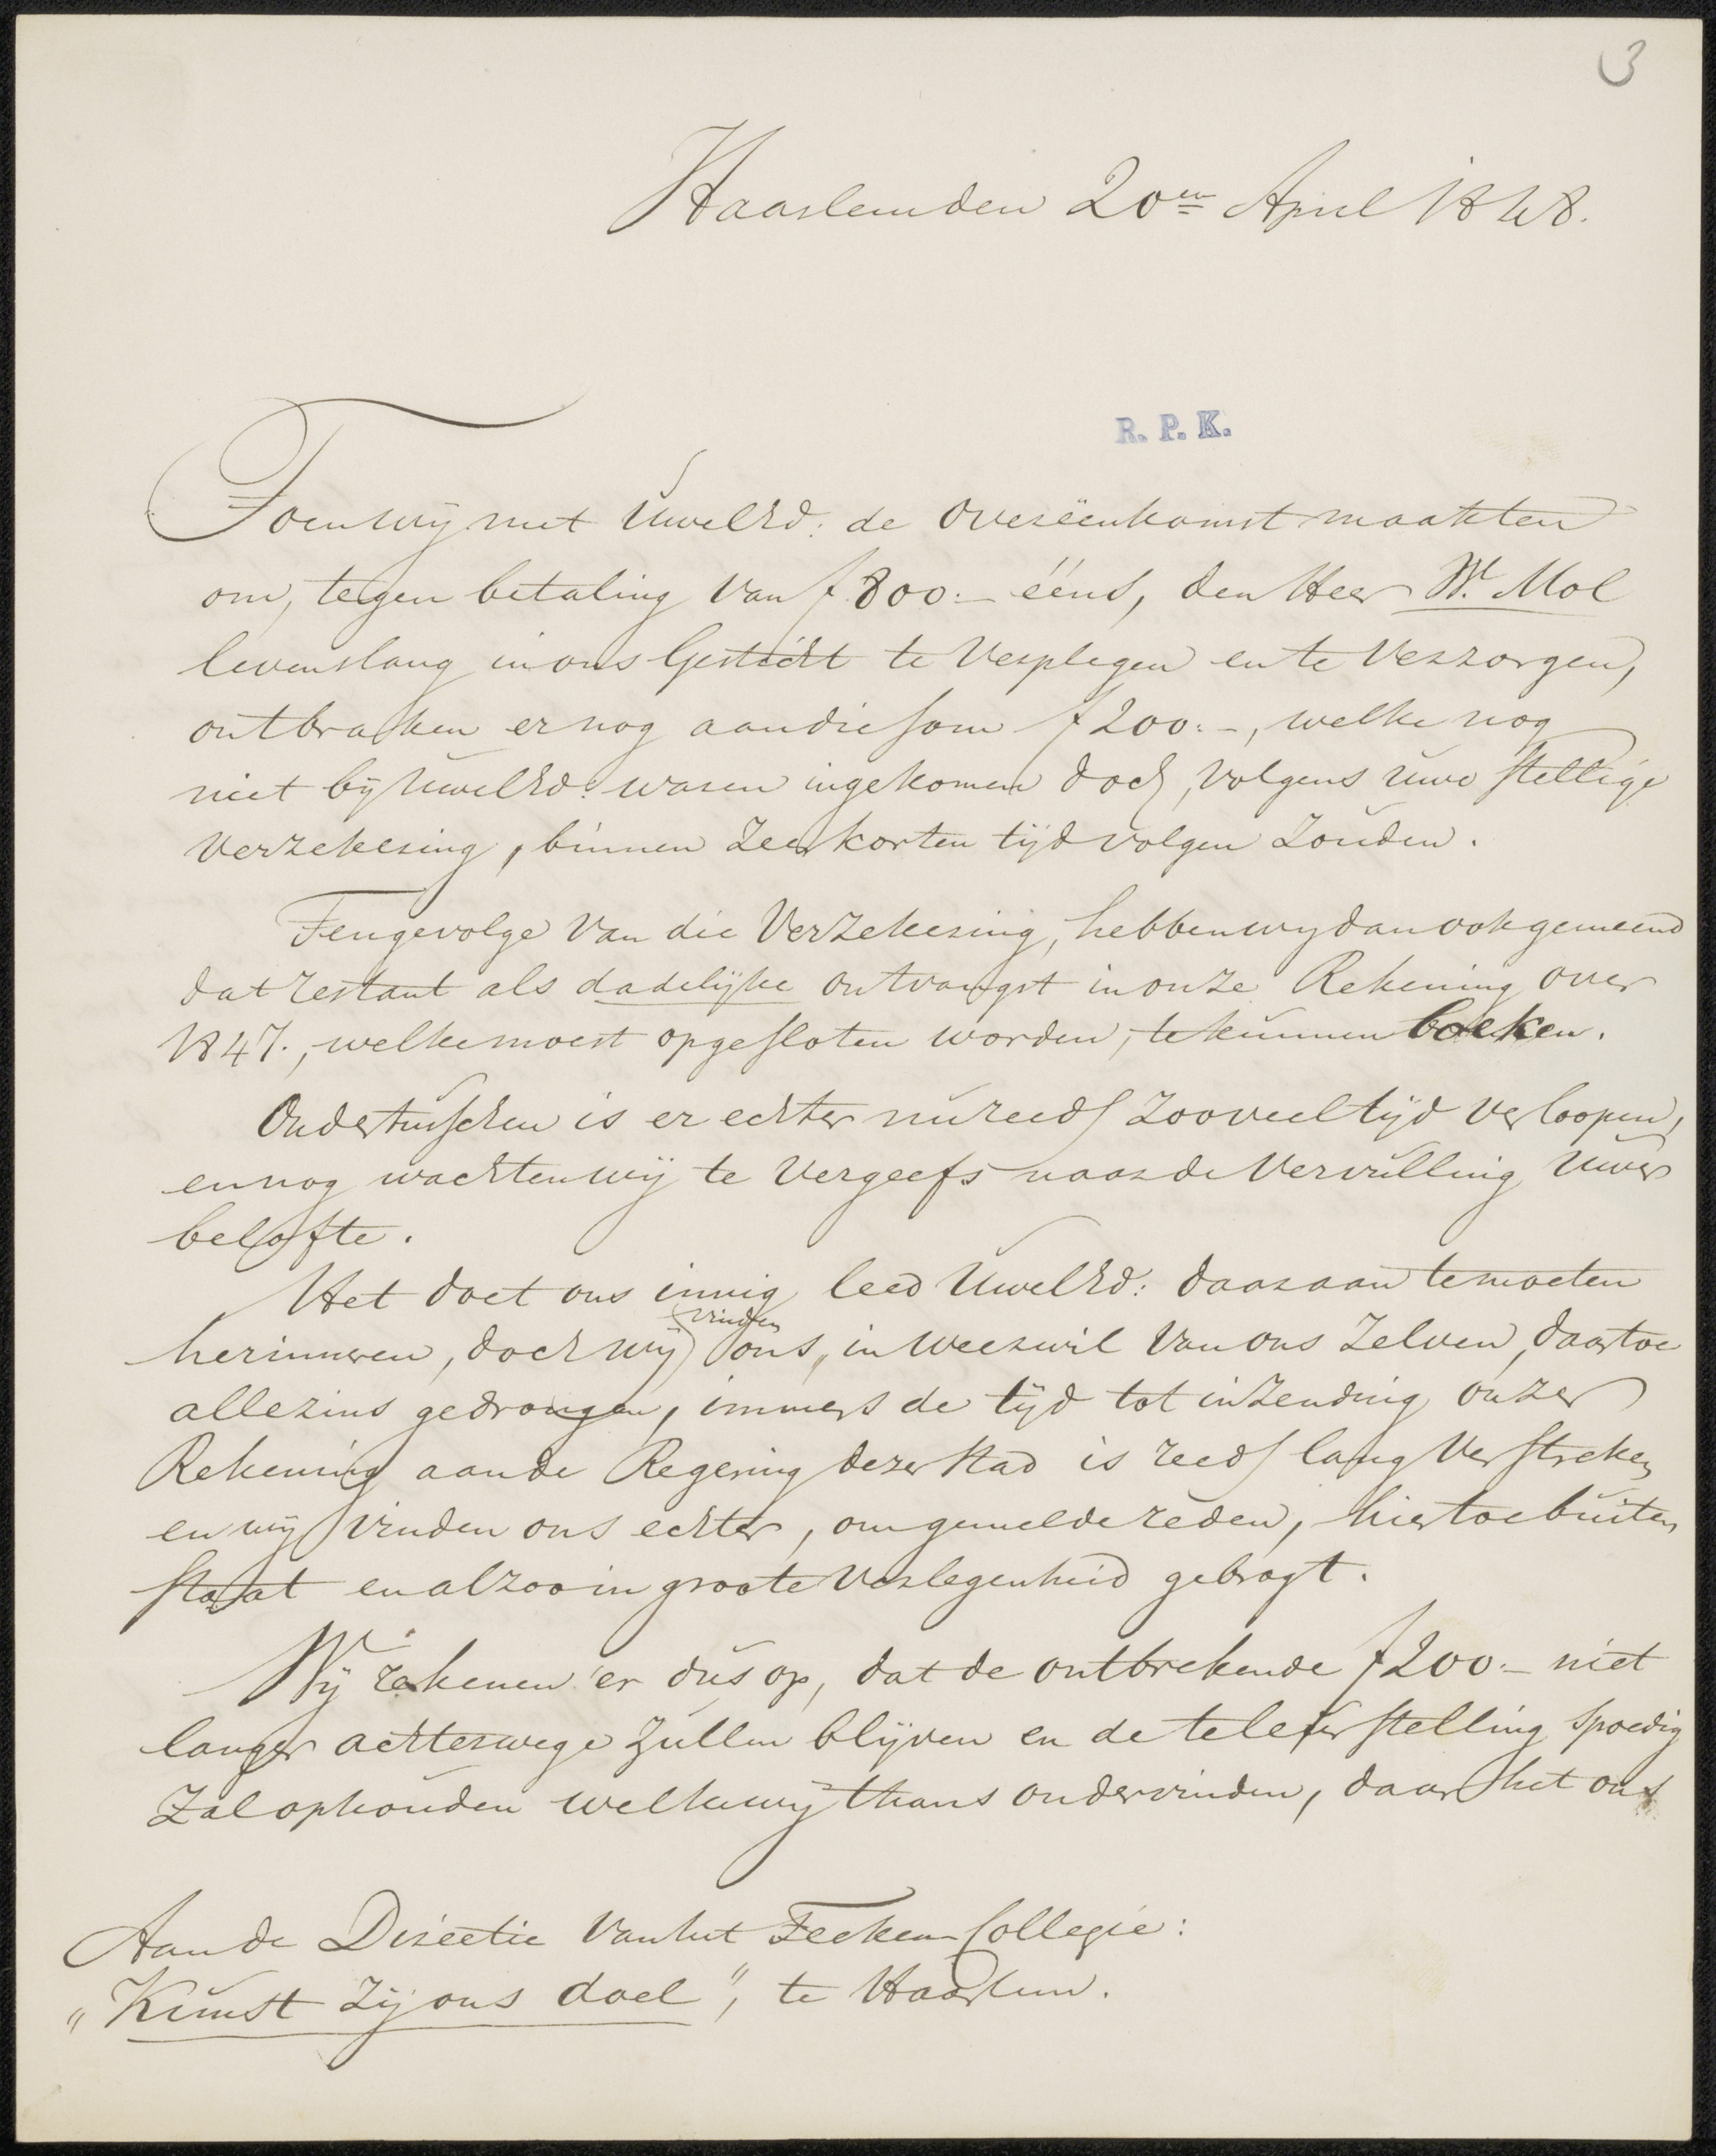 3
Haarlem den 20en April 1848.
R. P. K.
Toen wij met UwelEd: de overëenkomst maakten
om, tegen betaling van ƒ 800:- ééns, den Heer W. Mol
levenslang in ons Gesticht te verplegen en te verzorgen,
ontbraken er nog aan die som ƒ 200:-, welke nog
niet bij UwelEd: waren ingekomen doch, volgens uwe stellige
verzekering, binnen zeer korten tijd volgen zouden.
Tengevolge van die verzekering, hebben wij dan ook gemeend
dat restant als dadelijke ontvangst in onze Rekening over
1847., welke moest opgesloten worden, te kunnen boeken.
Ondertusschen is er echter nu reeds zooveel tijd verloopen,
en nog wachten wij te vergeefs naar de vervulling uwer
belofte.
Het doet ons innig leed UwelEd: daaraan te moeten
herinneren, doch wij vinden ons, in weerwil van ons zelven, daartoe
allezins gedrongen, immers de tijd tot inzending onzer
Rekening aan de Regering dezer stad is reeds lang verstreken
en wij vinden ons echter, om gemelde reden, hiertoe buiten
staat en alzoo in groote verlegenheid gebragt.
Wij rekenen er dus op, dat de ontbrekende ƒ 200:- niet
langer achterwege zullen blijven en de teleurstelling spoedig
zal ophouden welke wij thans ondervinden, daar het ons
Aan de Directie van het Teeken Collegie:
"Kunst zij ons doel", te Haarlem.